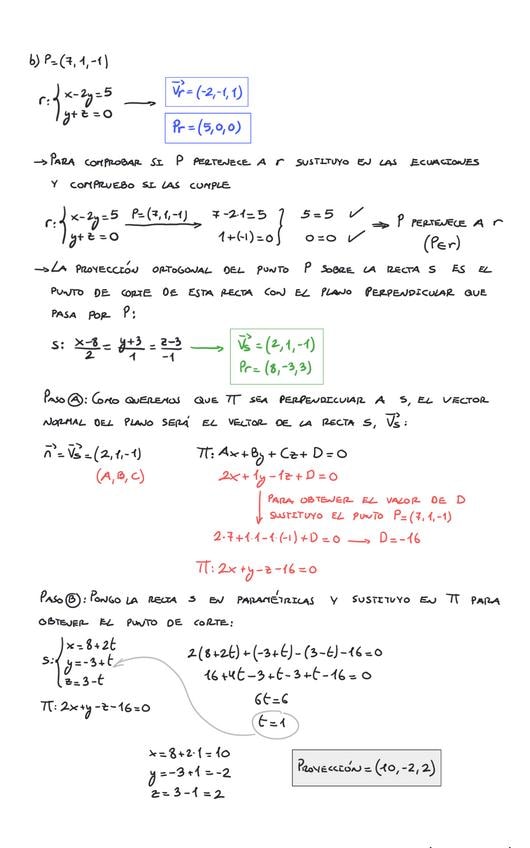 b) P=(7,1,-1)
r: { x-2y=5 → V⃗r=(-2,-1,1)
y+z=0 Pr=(5,0,0)
→ PARA COMPROBAR SI P PERTENECE A r SUSTITUYO EN LAS ECUACIONES
Y COMPRUEBO SI LAS CUMPLE
r: { x-2y=5 P=(7,1,-1) → 7-2·1=5 } 5=5 ✓ ⇒ P PERTENECE A r
y+z=0 1+(-1)=0 0=0 ✓ (P∈r)
→ LA PROYECCIÓN ORTOGONAL DEL PUNTO P SOBRE LA RECTA S ES EL
PUNTO DE CORTE DE ESTA RECTA CON EL PLANO PERPENDICULAR QUE
PASA POR P:
s: x-8/2 = y+3/1 = z-3/-1 → V⃗s=(2,1,-1)
Pr=(8,-3,3)
PASO Ⓐ: COMO QUEREMOS QUE π SEA PERPENDICULAR A S, EL VECTOR
NORMAL DEL PLANO SERÁ EL VECTOR DE LA RECTA S, V⃗s:
n⃗=V⃗s=(2,1,-1) π: Ax+By+Cz+D=0
(A,B,C) 2x+1y-1z+D=0
PARA OBTENER EL VALOR DE D
SUSTITUYO EL PUNTO P=(7,1,-1)
2·7+1·1-1·(-1)+D=0 → D=-16
π: 2x+y-z-16=0
PASO Ⓑ: PONGO LA RECTA S EN PARAMÉTRICAS Y SUSTITUYO EN π PARA
OBTENER EL PUNTO DE CORTE:
s: { x=8+2t
y=-3+t 2(8+2t)+(-3+t)-(3-t)-16=0
z=3-t 16+4t-3+t-3+t-16=0
π: 2x+y-z-16=0 6t=6
t=1
x=8+2·1=10
y=-3+1=-2 PROYECCIÓN=(10,-2,2)
z=3-1=2